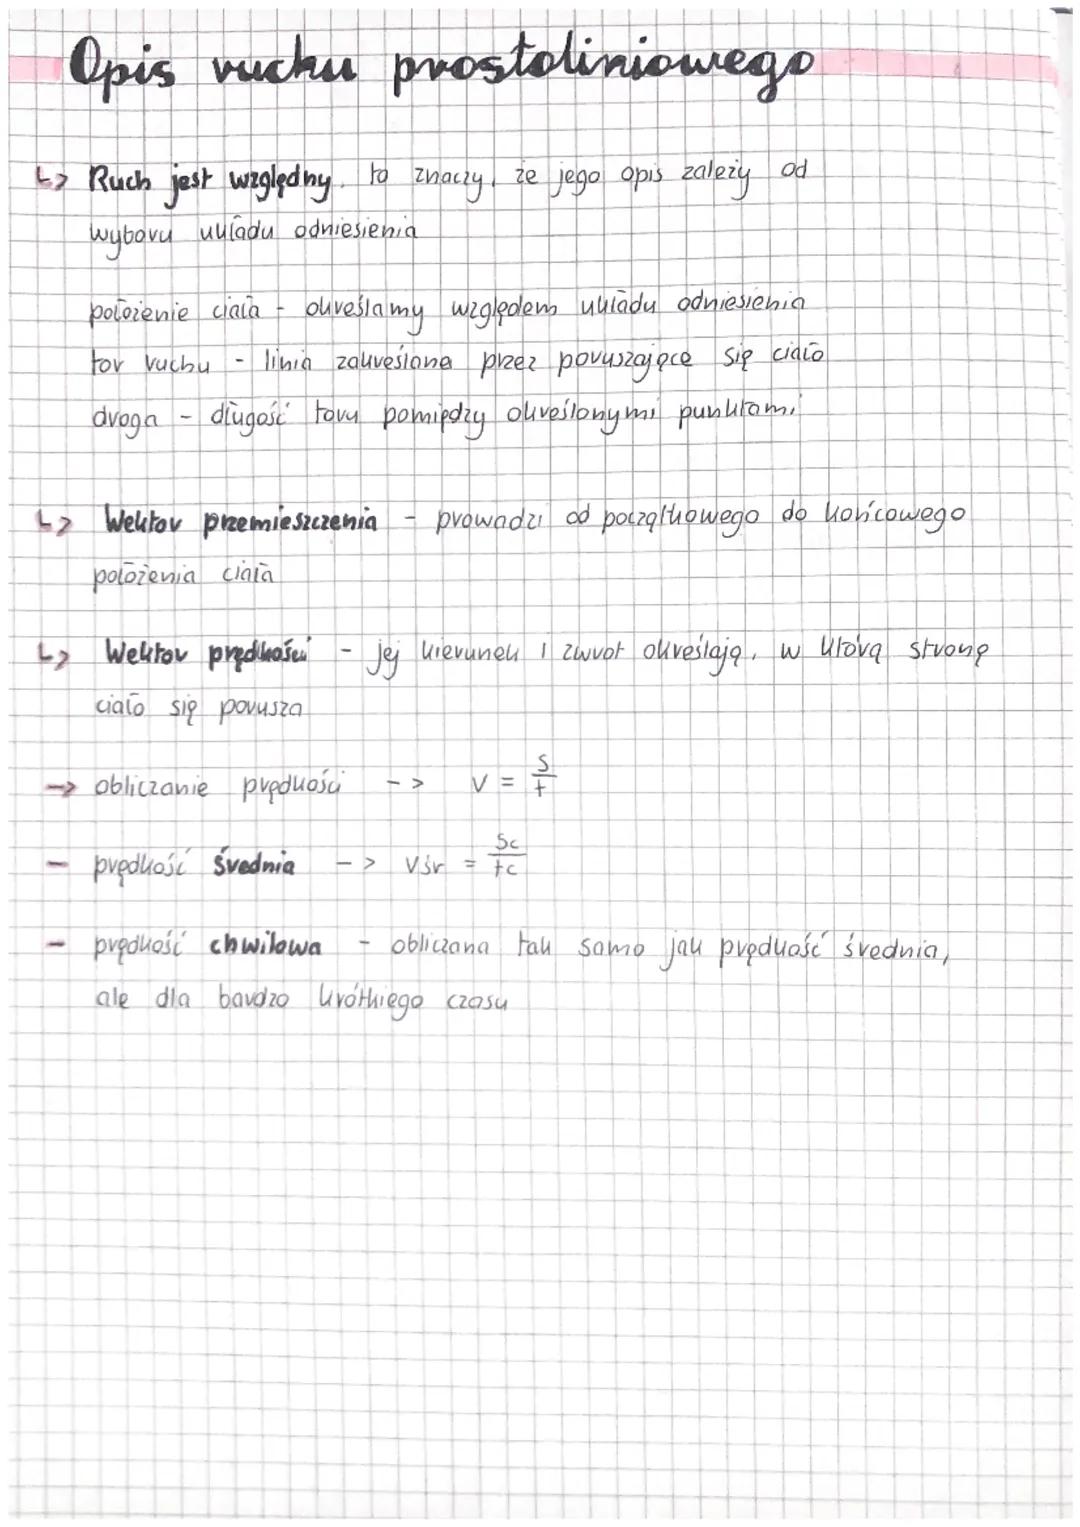 Opis ruchu prostoliniowego
↳ Ruch jest względny, to znaczy, że jego opis zależy od
wyboru układu odniesienia
położenie ciała - określamy względem układu odniesienia
tor ruchu - linia zakreślana przez poruszające się ciało
droga - długość toru pomiędzy określonymi punktami
↳ Wektor przemieszczenia - prowadzi od początkowego do końcowego
położenia ciała
↳ Wektor prędkości - jej kierunek i zwrot określają, w którą stronę
ciało się porusza
→ obliczanie prędkości -> V = S/t
- prędkość średnia -> Vśr = Sc/tc
- prędkość chwilowa - obliczana tak samo jak prędkość średnia,
ale dla bardzo krótkiego czasu